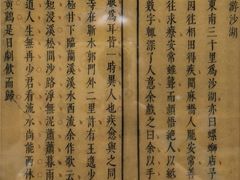 游沙湖
東南三十里爲沙湖亦曰螺師店予
疾聞麻橋人龐安常善
往求療安常雖聾而穎悟絕人以紙
數字輒深了人意余戲之曰余以手
眼爲耳皆一時異人也疾愈與之同
寺在蘄水郭門外二里許有王逸少
甘下臨蘭溪溪水西流余作歌云
短浸溪松間沙路淨無泥蕭蕭暮雨
道人生無再少君看流水尚能西休
黃雞是日劇飲而歸